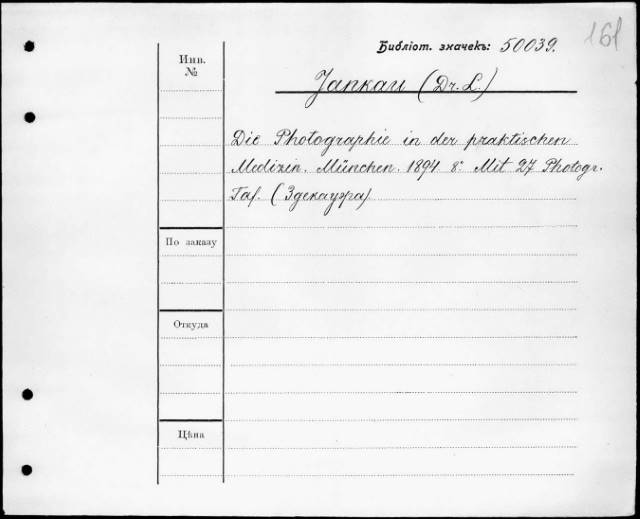 161
Библіот. значекъ: 50039.
Инв.
№
Jankau (Dr. L.)
Die Photographie in der praktischen
Medizin. München. 1894. 8º Mit 27 Photogr.
Taf. (3 декауфа)
По заказу
Откуда
Цѣна